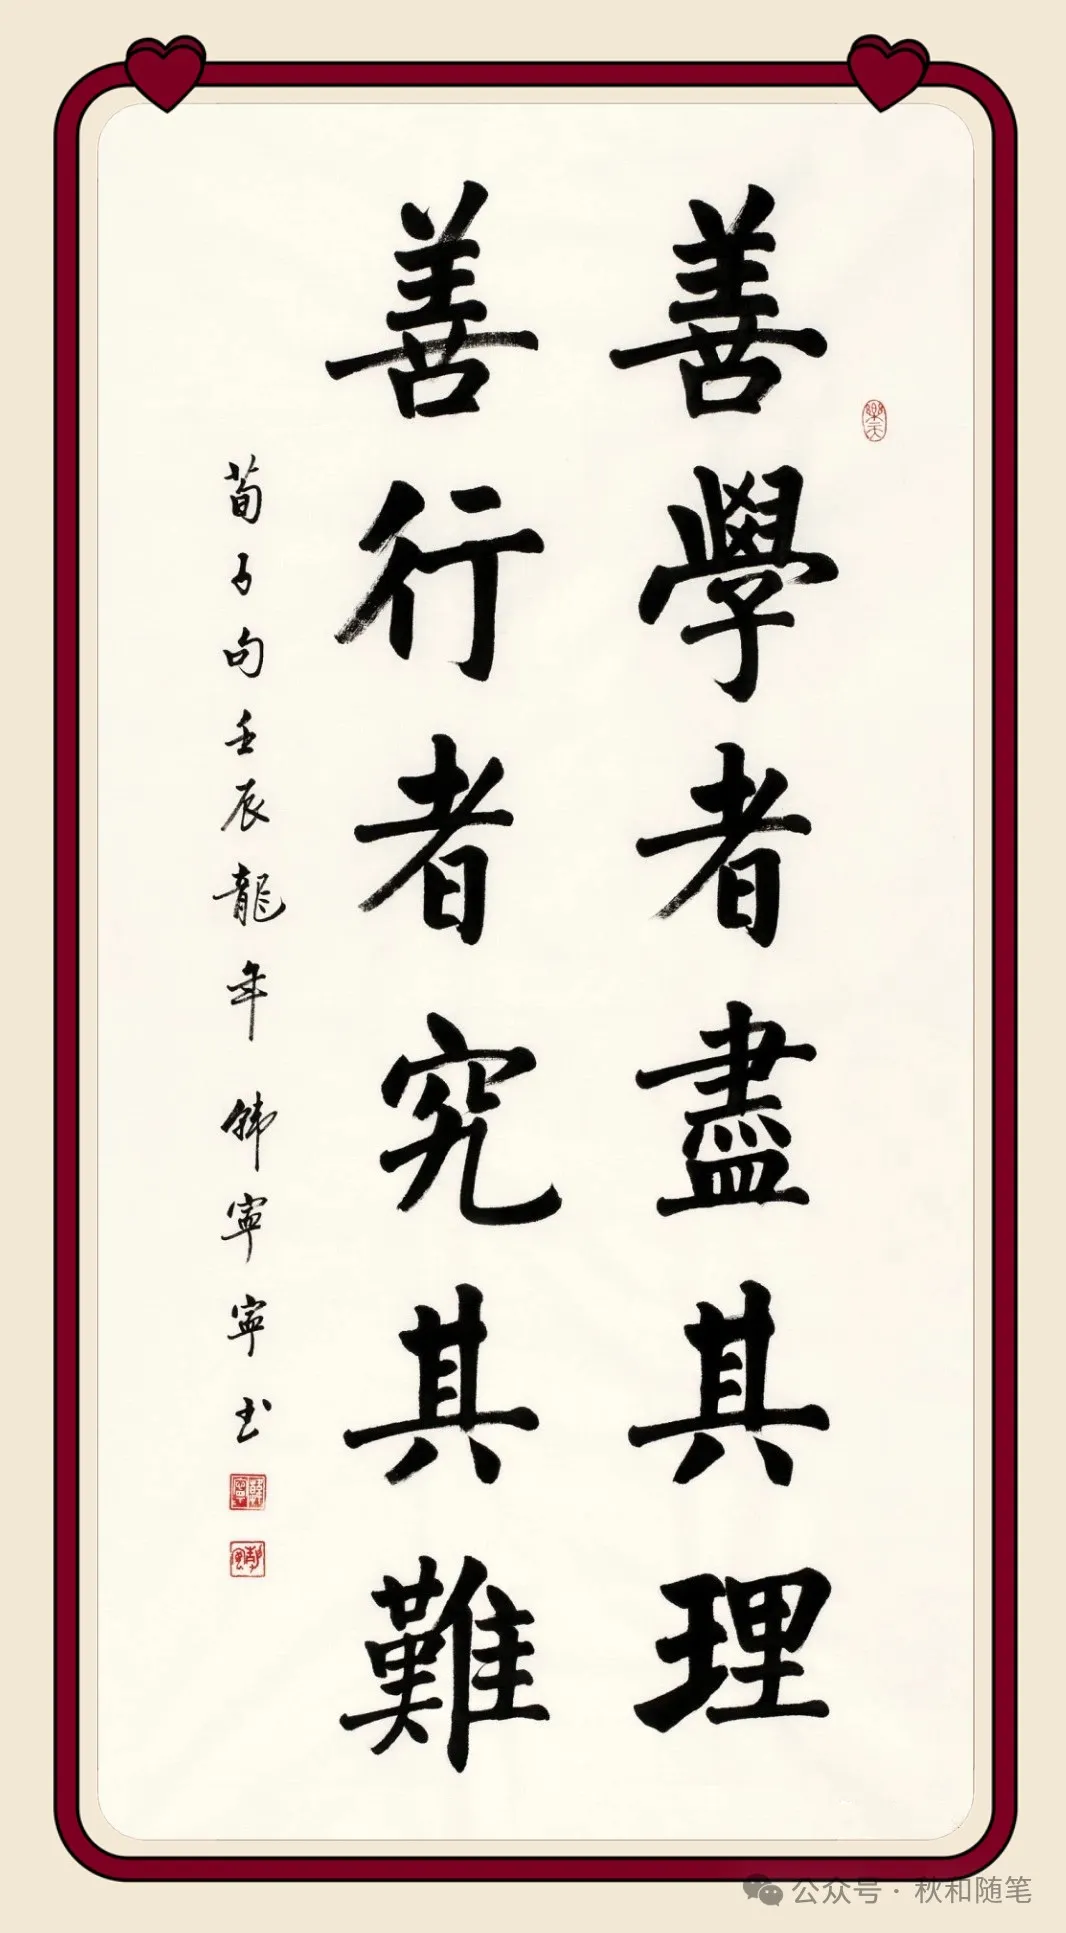 善學者盡其理
善行者究其難
荀子句壬辰龍年 韩寧寧书
樂天
公众号 · 秋和随笔